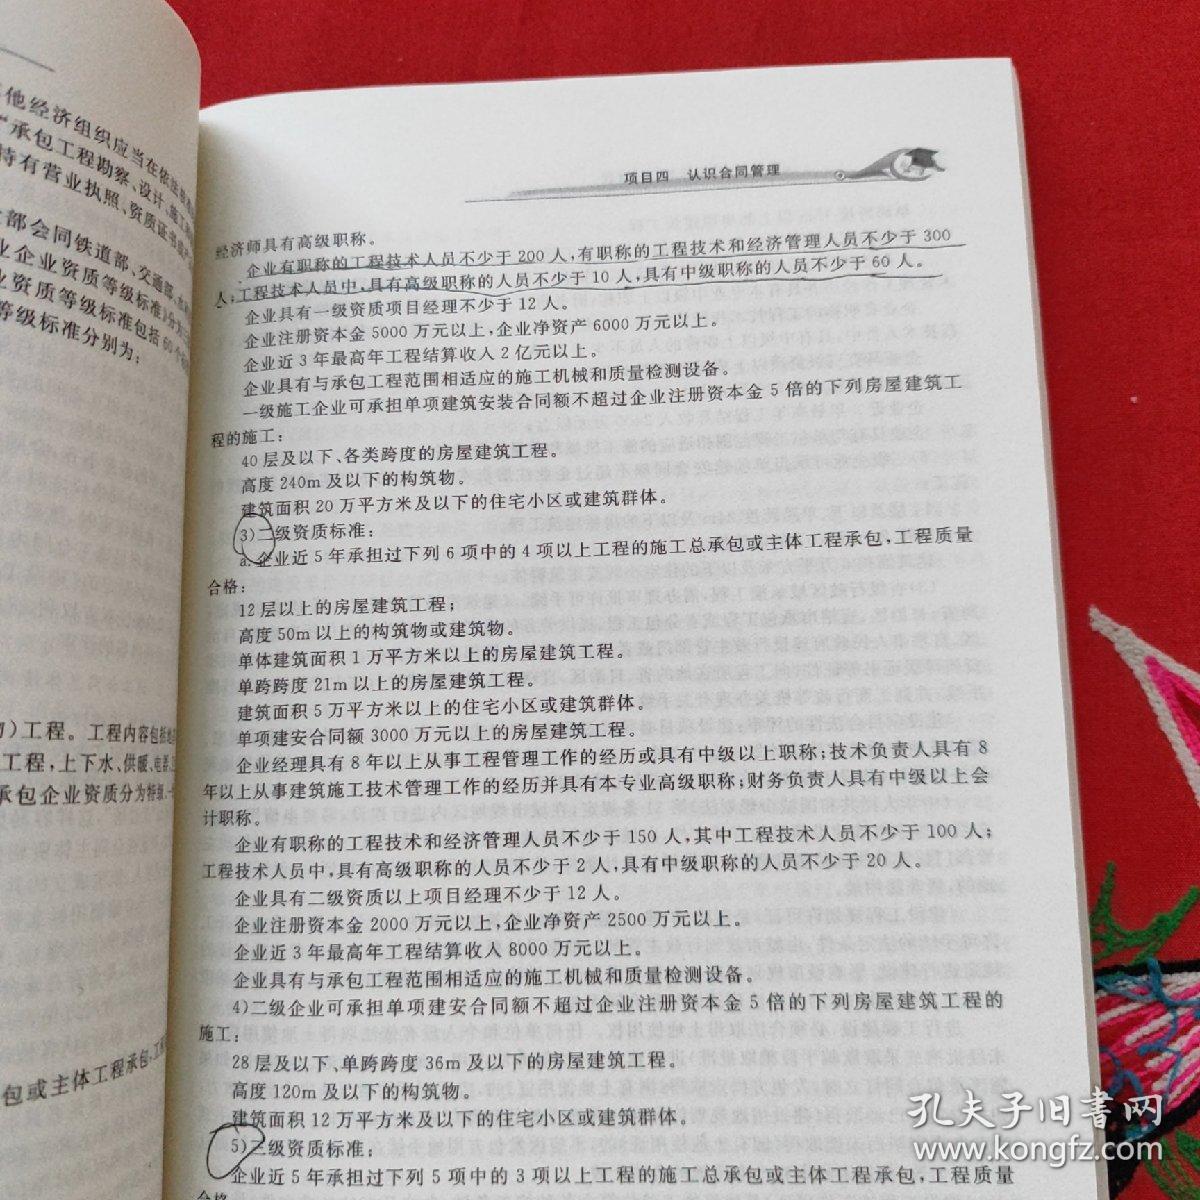 他经济组织应当在依法
"承包工程勘察、设计、施工
持有营业执照、资质证书
部会同铁道部、交通部、
业企业资质等级标准》分为
业资质等级标准包括60个
等级标准分别为:
)工程。工程内容包括地
工程,上下水、供暖、电器、
承包企业资质分为特级、一
包或主体工程承包,工程
项目四 认识合同管理
经济师具有高级职称。
企业有职称的工程技术人员不少于200人,有职称的工程技术和经济管理人员不少于300
人,工程技术人员中,具有高级职称的人员不少于10人,具有中级职称的人员不少于60人。
企业具有一级资质项目经理不少于12人。
企业注册资本金5000万元以上,企业净资产6000万元以上。
企业近3年最高年工程结算收入2亿元以上。
企业具有与承包工程范围相适应的施工机械和质量检测设备。
一级施工企业可承担单项建筑安装合同额不超过企业注册资本金5倍的下列房屋建筑工
程的施工:
40层及以下、各类跨度的房屋建筑工程。
高度240m及以下的构筑物。
建筑面积20万平方米及以下的住宅小区或建筑群体。
3)二级资质标准:
a.企业近5年承担过下列6项中的4项以上工程的施工总承包或主体工程承包,工程质量
合格:
12层以上的房屋建筑工程;
高度50m以上的构筑物或建筑物。
单体建筑面积1万平方米以上的房屋建筑工程。
单跨跨度21m以上的房屋建筑工程。
建筑面积5万平方米以上的住宅小区或建筑群体。
单项建安合同额3000万元以上的房屋建筑工程。
企业经理具有8年以上从事工程管理工作的经历或具有中级以上职称;技术负责人具有8
年以上从事建筑施工技术管理工作的经历并具有本专业高级职称;财务负责人具有中级以上会
计职称。
企业有职称的工程技术和经济管理人员不少于150人,其中工程技术人员不少于100人;
工程技术人员中,具有高级职称的人员不少于2人,具有中级职称的人员不少于20人。
企业具有二级资质以上项目经理不少于12人。
企业注册资本金2000万元以上,企业净资产2500万元以上。
企业近3年最高年工程结算收入8000万元以上。
企业具有与承包工程范围相适应的施工机械和质量检测设备。
4)二级企业可承担单项建安合同额不超过企业注册资本金5倍的下列房屋建筑工程的
施工:
28层及以下、单跨跨度36m及以下的房屋建筑工程。
高度120m及以下的构筑物。
建筑面积12万平方米及以下的住宅小区或建筑群体。
5)三级资质标准:
企业近5年承担过下列5项中的3项以上工程的施工总承包或主体工程承包,工程质量
合格
孔夫子旧书网
www.kongfz.com